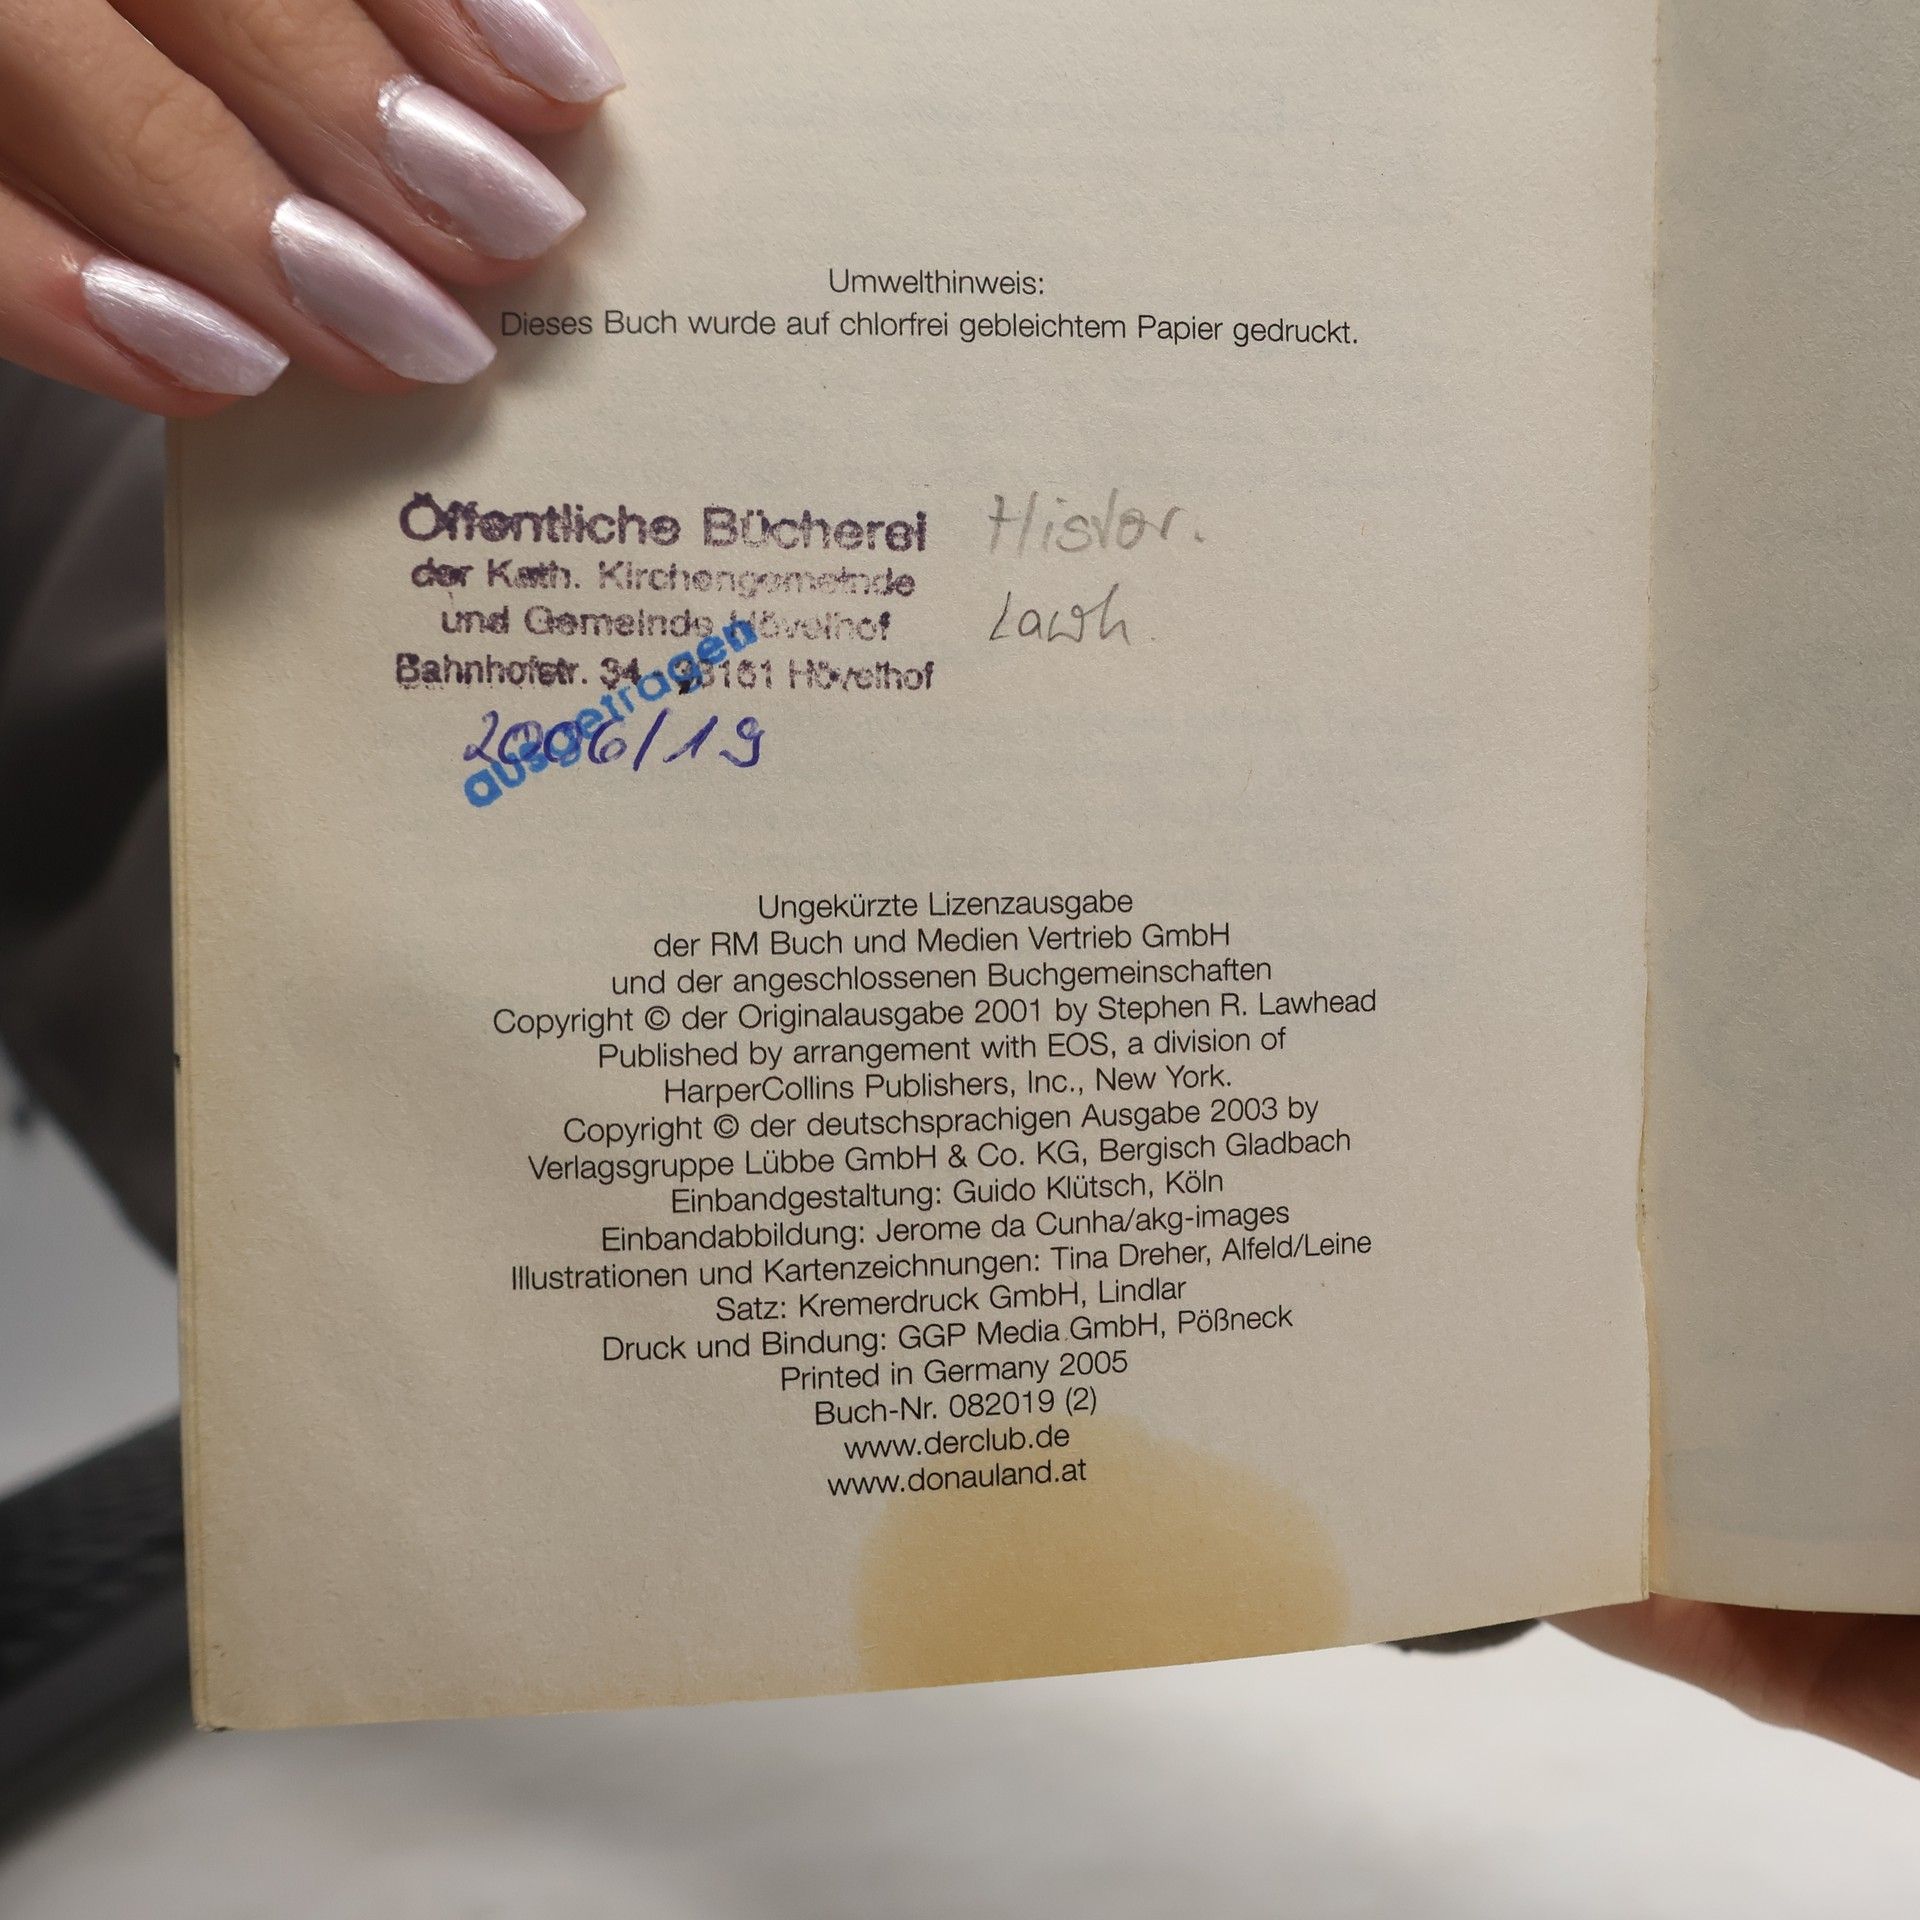 Umwelthinweis:
Dieses Buch wurde auf chlorfrei gebleichtem Papier gedruckt.
Öffentliche Bücherei
der Kath. Kirchengemeinde
und Gemeinde Hövelhof
Bahnhofstr. 34 - 33161 Hövelhof
2006/19
ausgetragen
Histor.
Lawh.
Ungekürzte Lizenzausgabe
der RM Buch und Medien Vertrieb GmbH
und der angeschlossenen Buchgemeinschaften
Copyright © der Originalausgabe 2001 by Stephen R. Lawhead
Published by arrangement with EOS, a division of
HarperCollins Publishers, Inc., New York.
Copyright © der deutschsprachigen Ausgabe 2003 by
Verlagsgruppe Lübbe GmbH & Co. KG, Bergisch Gladbach
Einbandgestaltung: Guido Klütsch, Köln
Einbandabbildung: Jerome da Cunha/akg-images
Illustrationen und Kartenzeichnungen: Tina Dreher, Alfeld/Leine
Satz: Kremerdruck GmbH, Lindlar
Druck und Bindung: GGP Media GmbH, Pößneck
Printed in Germany 2005
Buch-Nr. 082019 (2)
www.derclub.de
www.donauland.at